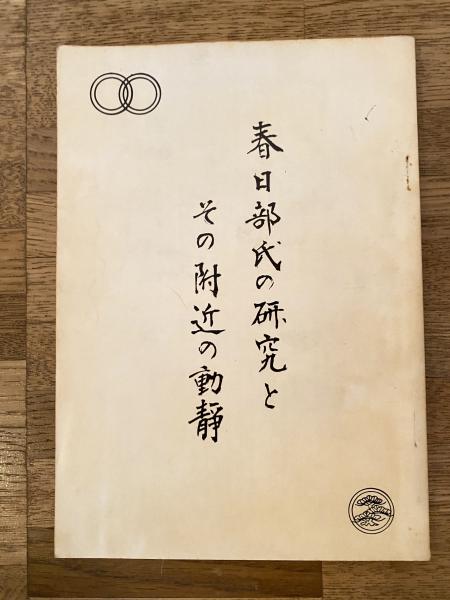 春日部氏の研究と
その附近の動静